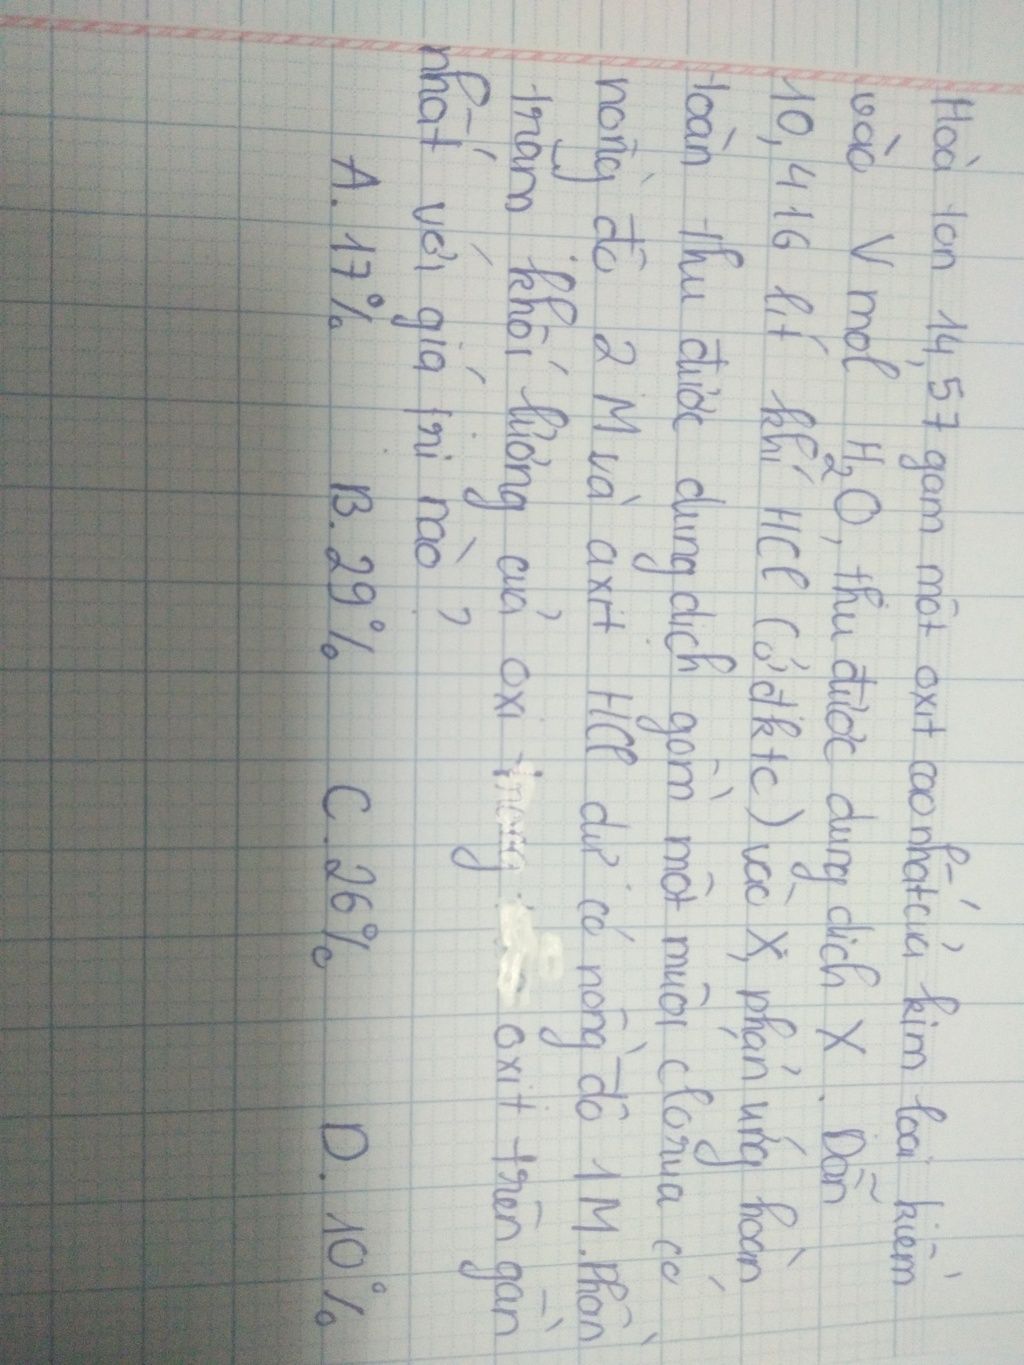 Hoà tan 14,57 gam một oxit cao nhất của kim loại kiềm
vào V mol H2O, thu được dung dịch X. Dẫn
10,416 lít khí HCl (ở đktc) vào X, phản ứng hoàn
toàn thu được dung dịch gồm một muối clorua có
nồng độ 2 M và axit HCl dư có nồng độ 1 M. Phần
trăm khối lượng của oxi trong oxit trên gần
nhất với giá trị nào?
A. 17% B. 29% C. 26% D. 10%